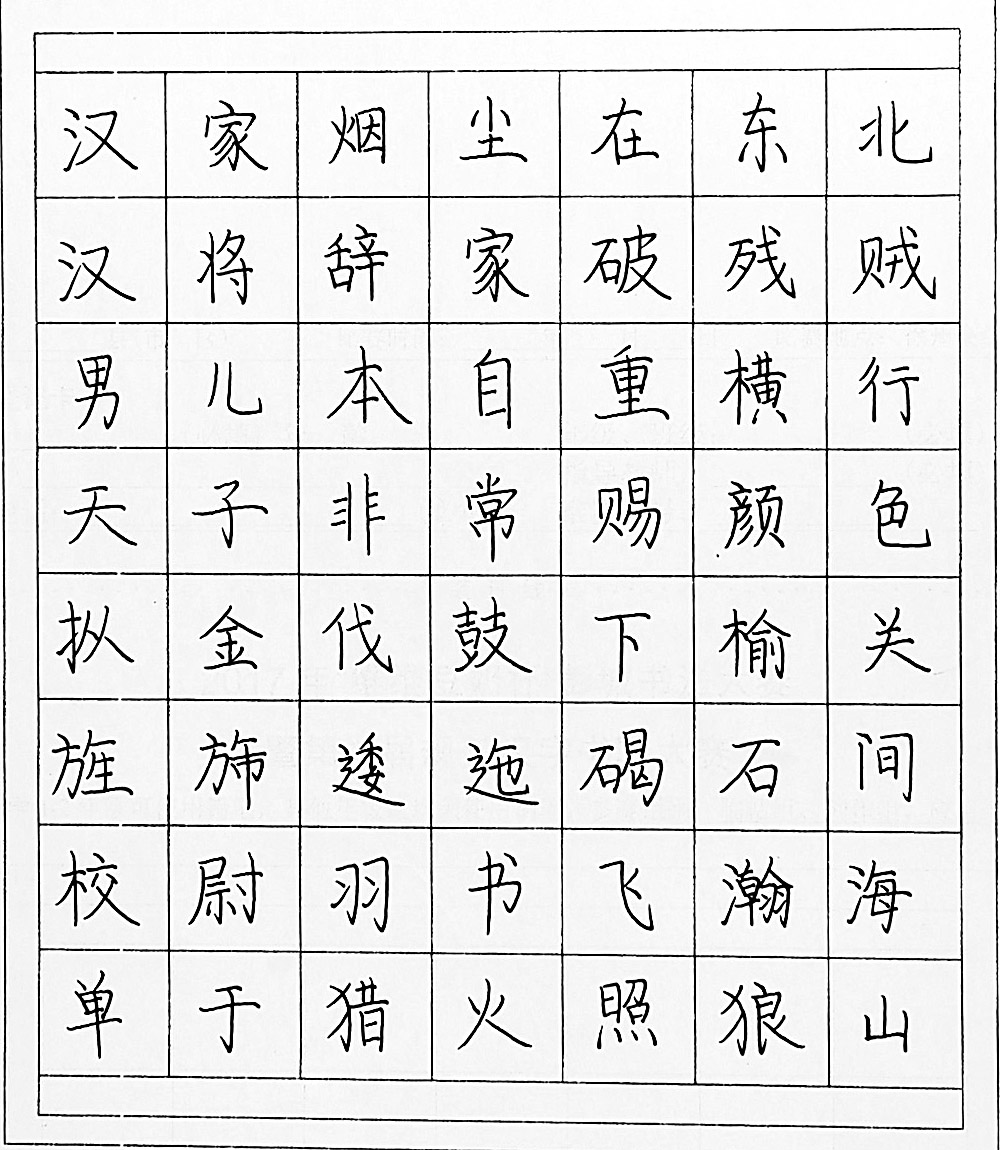 汉家烟尘在东北
汉将辞家破残贼
男儿本自重横行
天子非常赐颜色
㧐金伐鼓下榆关
旌旆逶迤碣石间
校尉羽书飞瀚海
单于猎火照狼山